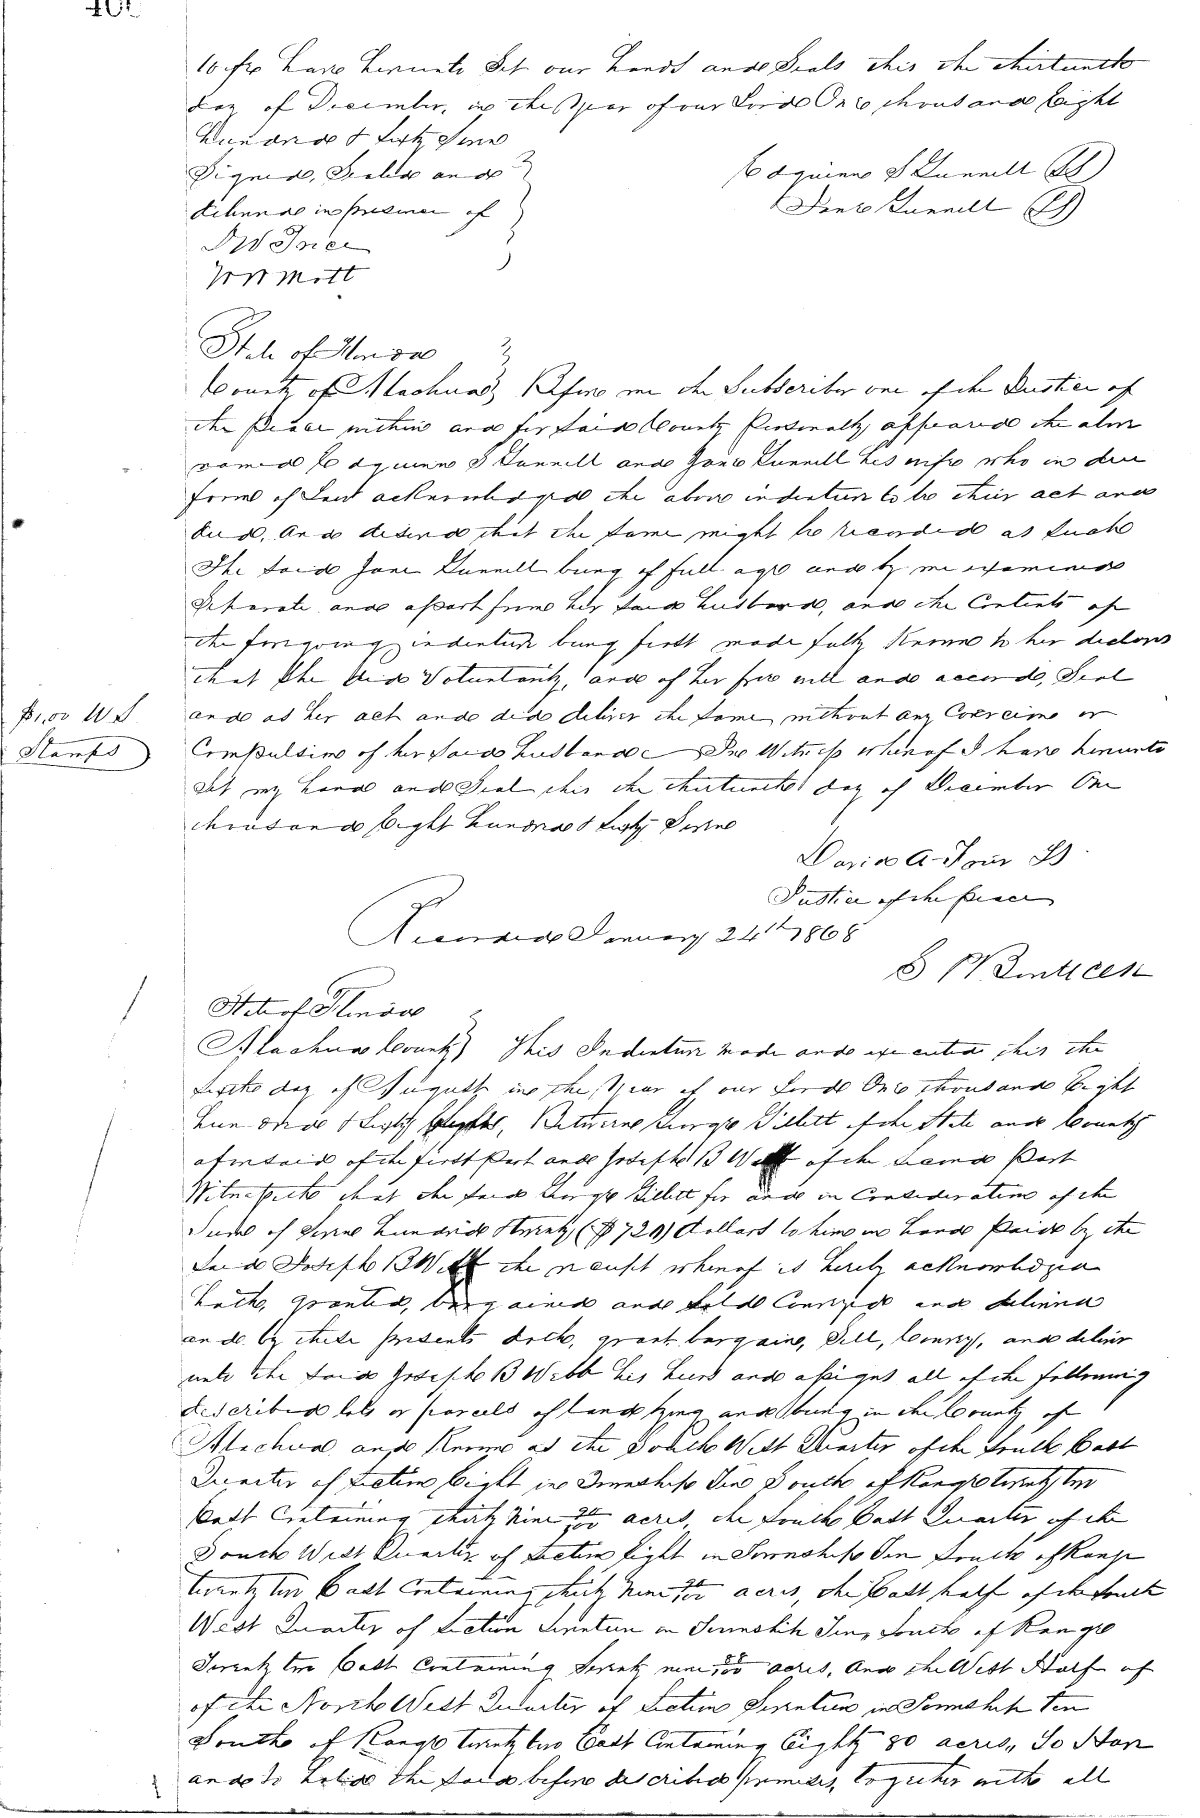 400
have hereunto Set our hands and Seals this the thirteenth
day of December, in the Year of our Lord One thousand Eight
hundred & Sixty Seven
Signed, Sealed and
delivered in presence of
Tunnell (LS)
Jane Tunnell (LS)
Mott
State of Florida
County of Alachua } Before me the Subscriber one of the Justice of
the Peace within and for Said County Personally appeared the above
named Tunnell and Jane Tunnell his wife who in due
form of Law acknowledged the above indenture to be their act and
deed, And desired that the Same might be recorded as Such
The Said Jane Tunnell being of full age and by me examined
Seperate and apart from her Said husband, and the Contents of
the foregoing indenture being first made fully Known to her declares
that She did Voluntarily, and of her free will and accord, Seal
$1.00 U S
Stamps
and as her act and deed deliver the Same, without any Coercion or
Compulsion of her Said husband In Witness whereof I have hereunto
Set my hand and Seal this the thirteenth day of December One
thousand Eight hundred & Sixty Seven
David A
Justice of the peace
Recorded January 24th 1868
State of Florida
Alachua County } This Indenture made and executed this the
Sixth day of August in the Year of our Lord One thousand Eight
hundred & Sixty Between George Gillett of the State and County
aforesaid of the first Part and Joseph B Webb of the Second Part
Witnesseth that the Said George Gillett for and in Consideration of the
Sum of Seven hundred & twenty ($720) dollars to him in hand Paid by the
Said Joseph B Webb the receipt whereof is hereby acknowledged
hath, granted, bargained and Sold Conveyed and delivered
and by these presents doth, grant, bargain, Sell, Convey, and deliver
unto the Said Joseph B Webb his heirs and assigns all of the following
described lots or parcels of land lying and being in the County of
Alachua and Known as the South West Quarter of the South East
Quarter of Section Eight in Township Ten South of Range twenty two
East Containing thirty Nine acres, the South East Quarter of the
South West Quarter of Section Eight in Township Ten South of Range
twenty two East Containing thirty Nine acres, the East half of the South
West Quarter of Section Seventeen in Township Ten, South of Range
Twenty two East Containing Seventy nine 88/100 acres, And the West Half of
of the North West Quarter of Section Seventeen in Township Ten
South of Range twenty two East Containing Eighty 80 acres, To Have
and to hold the Said before described premises, together with all